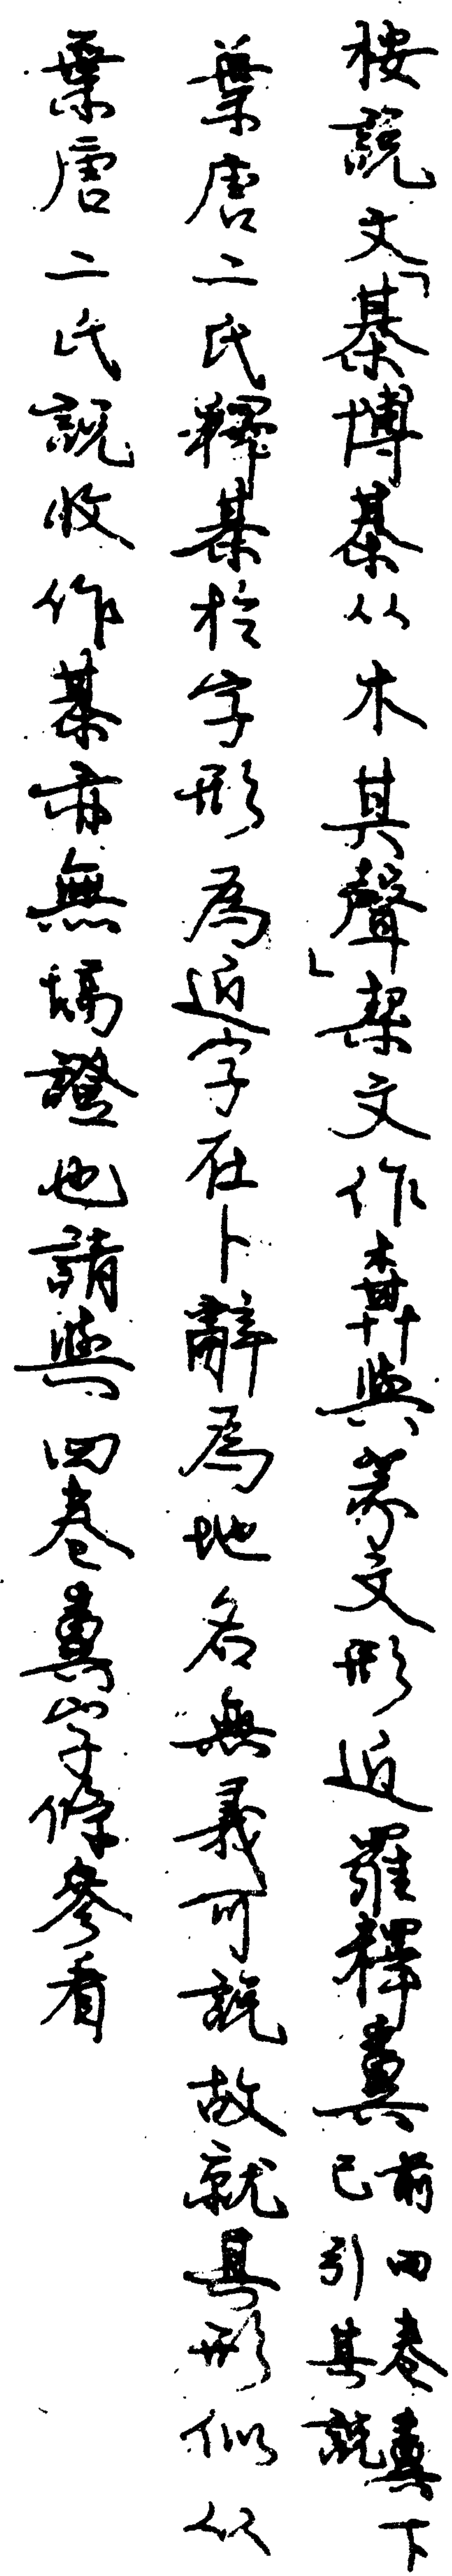 按說文「綦博綦从木其聲」契文作𣓤與篆文形近羅釋糞前四卷糞下已引其說
葉唐二氏釋棊於字形為近字在卜辭為地名無義可說故就其形似从
葉唐二氏說收作棊亦無塙證也請與四卷糞字條參看